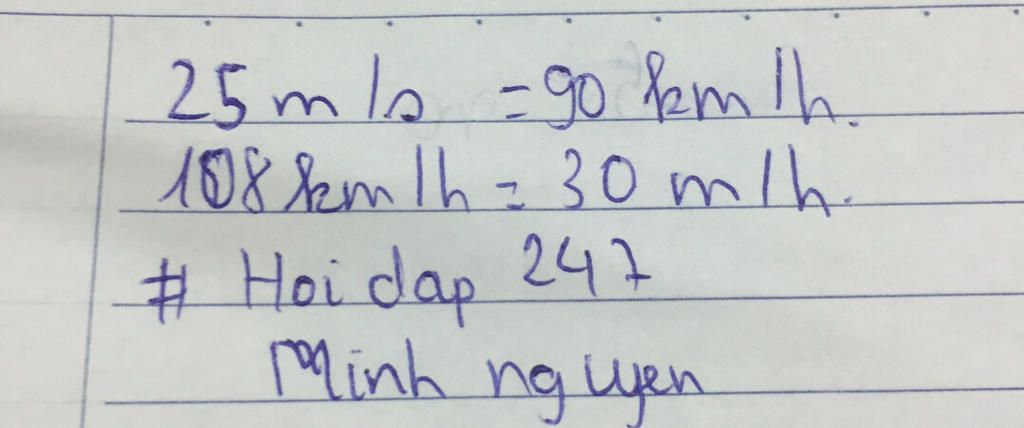 25 m/s = 90 km/h.
108 km/h = 30 m/h.
# Hoi dap 247
Minh nguyen